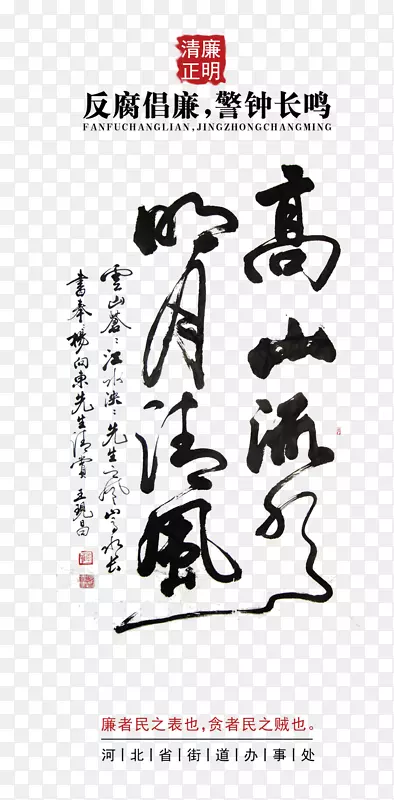 清廉
正明
反腐倡廉,警钟长鸣
FANFUCHANGLIAN,JINGZHONGCHANGMING
高山流水
明月清风
雲山蒼々江水泱々先生之风山高水长
書奉楊向東先生清賞 王現昌
廉者民之表也,贪者民之贼也。
河|北|省|街|道|办|事|处